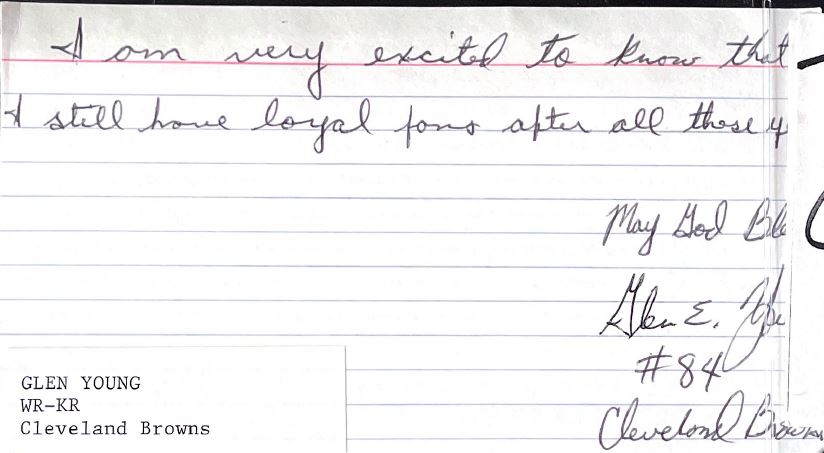 I am very excited to know that
I still have loyal fans after all these
May God
Glen E.
#84
Cleveland Browns
GLEN YOUNG
WR-KR
Cleveland Browns